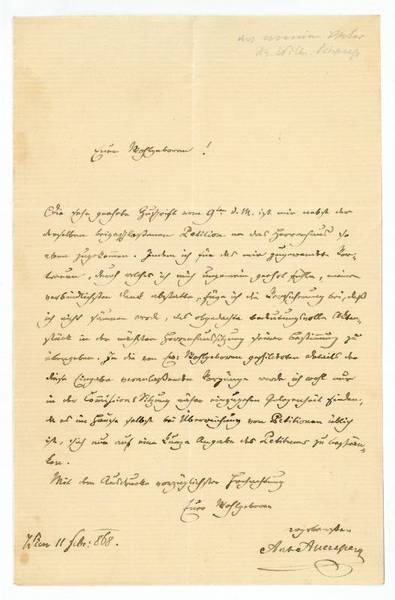 Euer Wohlgeboren!
Die sehr geehrte Zuschrift vom 9ten d. M. ist mir nebst der
derselben beigeschlossenen Petition an das Herrenhaus so
eben zugekommen. Indem ich für das mir zugewandte Ver-
trauen, durch welches ich mich ungemein geehrt fühle, meinen
verbindlichsten Dank abstatte, füge ich die Versicherung bei, daß
ich nicht säumen werde, das obgedachte bedeutungsvolle Akten-
stück in der nächsten Herrenhaussitzung seiner Bestimmung zu
übergeben. In die von Eur Wohlgeboren geschilderten Details der
diese Eingabe veranlassenden Vorgänge werde ich wohl nur
in der Commissions Sitzung näher einzugehen Gelegenheit finden,
da es im Hause selbst bei Überreichung von Petitionen üblich
ist, sich nur auf eine kurze Angabe des Petitums zu beschrän-
ken.
Mit dem Ausdrucke vorzüglichster Hochachtung
Euer Wohlgeboren
ergebenster
Ant. Auersperg
Wien 11 Febr: 868.